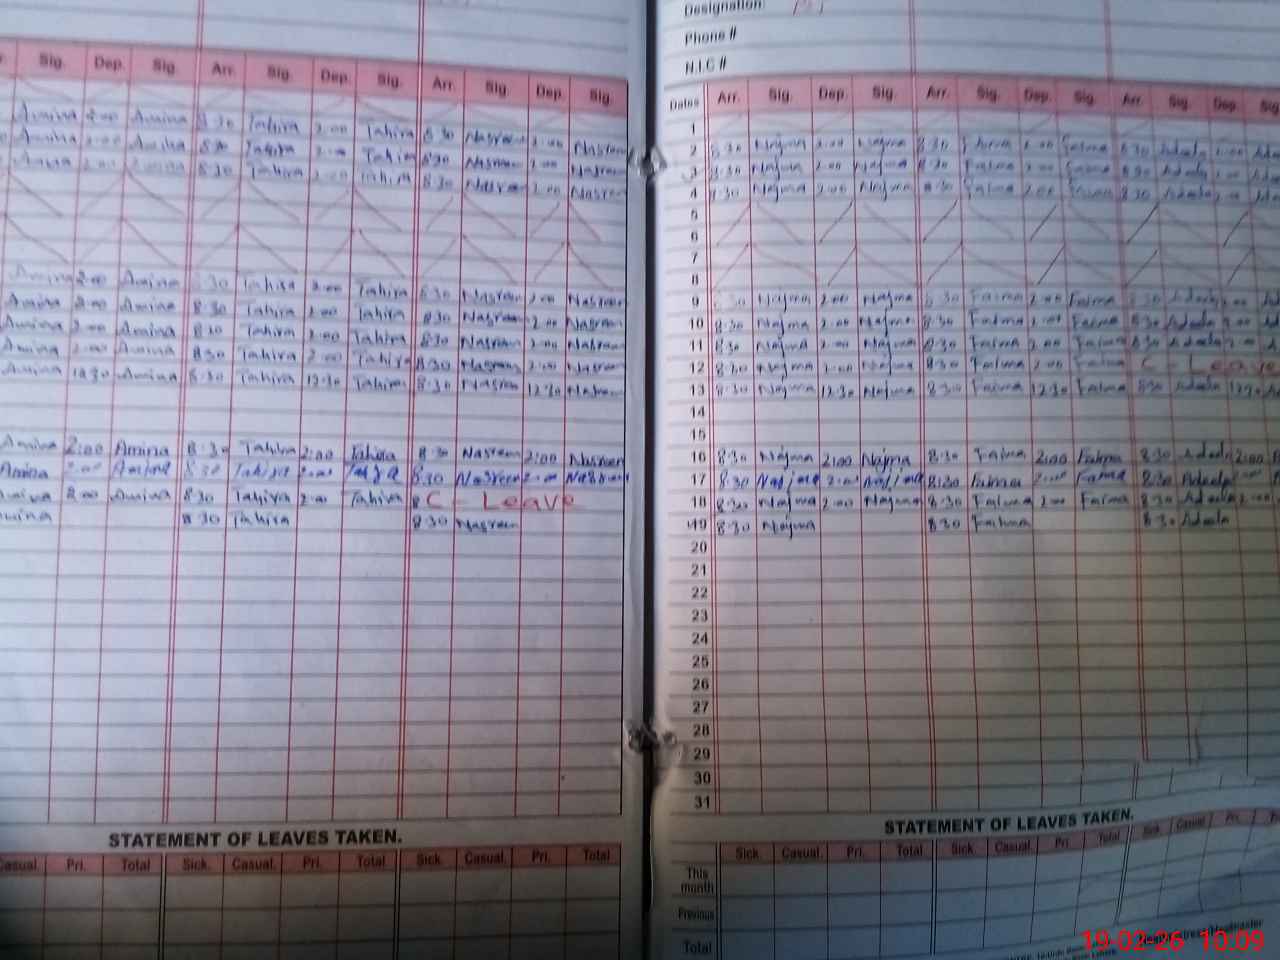 Designation
Phone #
N.I.C #
Sig. Dep. Sig. Arr. Sig. Dep. Sig. Arr. Sig. Dep. Sig.
Dates Arr. Sig. Dep. Sig. Arr. Sig. Dep. Sig. Arr. Sig. Dep. Sig
Amina 2:00 Amina 8:30 Tahira 2:00 Tahira 8:30 Nasreen 2:00 Nasreen
Amina 2:00 Amina 8:30 Tahira 2:00 Tahira 8:30 Nasreen 2:00 Nasreen
Amina 2:00 Amina 8:30 Tahira 2:00 Tahira 8:30 Nasreen 2:00 Nasreen
Amina 2:00 Amina 8:30 Tahira 2:00 Tahira 8:30 Nasreen 2:00 Nasreen
Amina 2:00 Amina 8:30 Tahira 2:00 Tahira 8:30 Nasreen 2:00 Nasreen
Amina 2:00 Amina 8:30 Tahira 2:00 Tahira 8:30 Nasreen 2:00 Nasreen
Amina 2:00 Amina 8:30 Tahira 2:00 Tahira 8:30 Nasreen 2:00 Nasreen
Amina 12:30 Amina 8:30 Tahira 12:30 Tahira 8:30 Nasreen 12:30 Nasreen
Amina 2:00 Amina 8:30 Tahira 2:00 Tahira 8:30 Nasreen 2:00 Nasreen
Amina 2:00 Amina 8:30 Tahira 2:00 8:30 Nasreen 2:00 Nasreen
Amina 2:00 Amina 8:30 Tahira 2:00 Tahira C - Leave
Amina 8:30 Tahira 8:30 Nasreen
STATEMENT OF LEAVES TAKEN.
Casual. Pri. Total Sick. Casual. Pri. Total Sick. Casual. Pri. Total
1
2 8:30 Najma 2:00 Najma 8:30 Fatma 2:00 Fatma 8:30 Adeela 2:00
3 8:30 Najma 2:00 Najma 8:30 Fatma 2:00 Fatma 8:30 Adeela 2:00
4 8:30 Najma 2:00 Najma 8:30 Fatma 2:00 Fatma 8:30 Adeela 2:00
5
6
7
8
9 8:30 Najma 2:00 Najma 8:30 Fatma 2:00 Fatma 8:30 Adeela 2:00
10 8:30 Najma 2:00 Najma 8:30 Fatma 2:00 Fatma 8:30 Adeela 2:00
11 8:30 Najma 2:00 Najma 8:30 Fatma 2:00 Fatma 8:30 Adeela 2:00
12 8:30 Najma 2:00 Najma 8:30 Fatma 2:00 Fatma C - Leave
13 8:30 Najma 12:30 Najma 8:30 Fatma 12:30 Fatma 8:30 Adeela 12:30
14
15
16 8:30 Najma 2:00 Najma 8:30 Fatma 2:00 Fatma 8:30 Adeela 2:00
17 8:30 Najma 2:00 Najma 8:30 Fatma 2:00 Fatma 8:30 Adeela 2:00
18 8:30 Najma 2:00 Najma 8:30 Fatma 2:00 Fatma 8:30 Adeela 2:00
19 8:30 Najma 8:30 Fatma 8:30 Adeela
20
21
22
23
24
25
26
27
28
29
30
31
STATEMENT OF LEAVES TAKEN.
Sick. Casual. Pri. Total Sick. Casual. Pri. Total Sick. Casual. Pri.
This month
Previous
Total
19-02-26 10:09